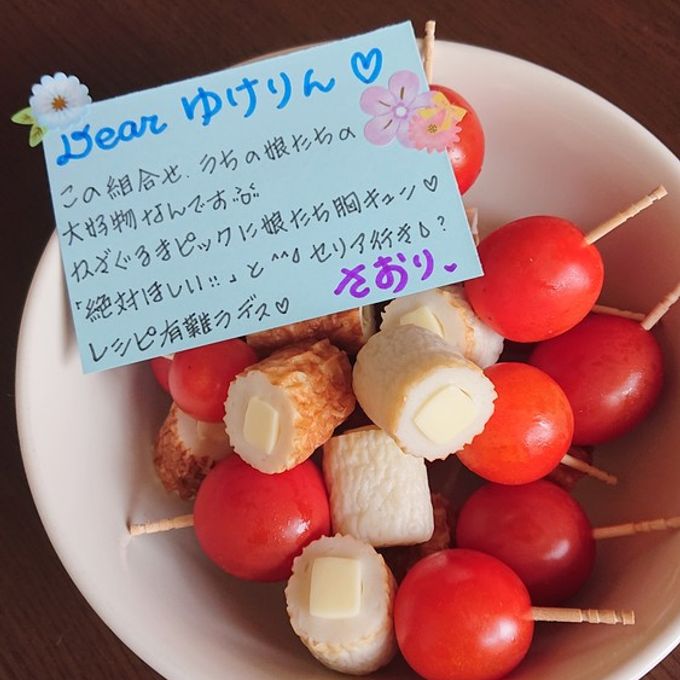 Dear ゆけりん♡
この組合せ、うちの娘たちの
大好物なんです
かざぐるまピックに娘たち胸キュン♡
「絶対ほしい!!」と^^ セリア行き?
レシピ有難ラデス♡
さおり